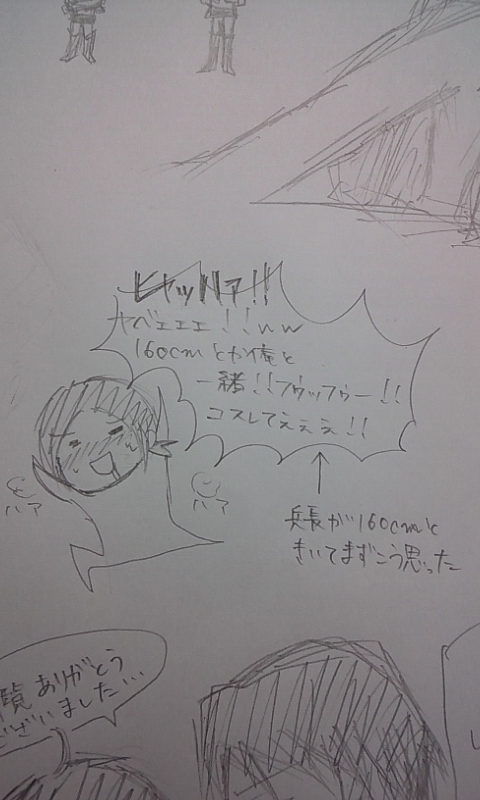 ヒャッハァ!!
ヤベェェェ!!ww
160cmとか俺と
一緒!!フゥッフゥー!!
コスしてぇぇぇ!!
ハア
ハア
兵長が160cmと
きいてまずこう思った
覧ありがとう
ございました…